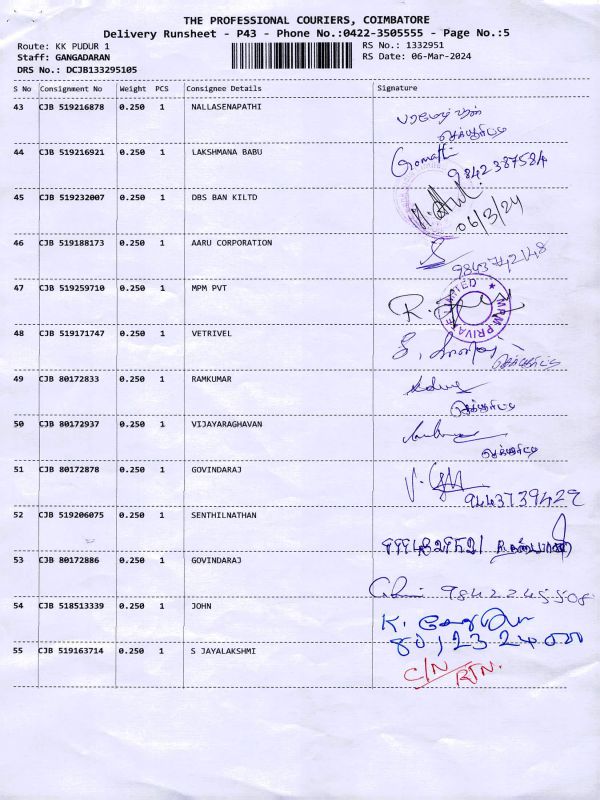 THE PROFESSIONAL COURIERS, COIMBATORE
Delivery Runsheet - P43 - Phone No.:0422-3505555 - Page No.:5
Route: KK PUDUR 1 RS No.: 1332951
Staff: GANGADARAN RS Date: 06-Mar-2024
DRS No.: DCJB133295105
S No Consignment No Weight PCS Consignee Details Signature
43 CJB 519216878 0.250 1 NALLASENAPATHI
செக்யூரிட்டி
44 CJB 519216921 0.250 1 LAKSHMANA BABU Gomathi
9842387584
45 CJB 519232007 0.250 1 DBS BAN KILTD
06/3/24
46 CJB 519188173 0.250 1 AARU CORPORATION
9843742148
47 CJB 519259710 0.250 1 MPM PVT
MPM PRIVATE LIMITED
48 CJB 519171747 0.250 1 VETRIVEL
செக்யூரிட்டி
49 CJB 80172833 0.250 1 RAMKUMAR
செக்யூரிட்டி
50 CJB 80172937 0.250 1 VIJAYARAGHAVAN
செக்யூரிட்டி
51 CJB 80172878 0.250 1 GOVINDARAJ
9443739429
52 CJB 519206075 0.250 1 SENTHILNATHAN
9994829521
53 CJB 80172886 0.250 1 GOVINDARAJ
9842245508
54 CJB 518513339 0.250 1 JOHN K.
8012324000
55 CJB 519163714 0.250 1 S JAYALAKSHMI C/N RTN.